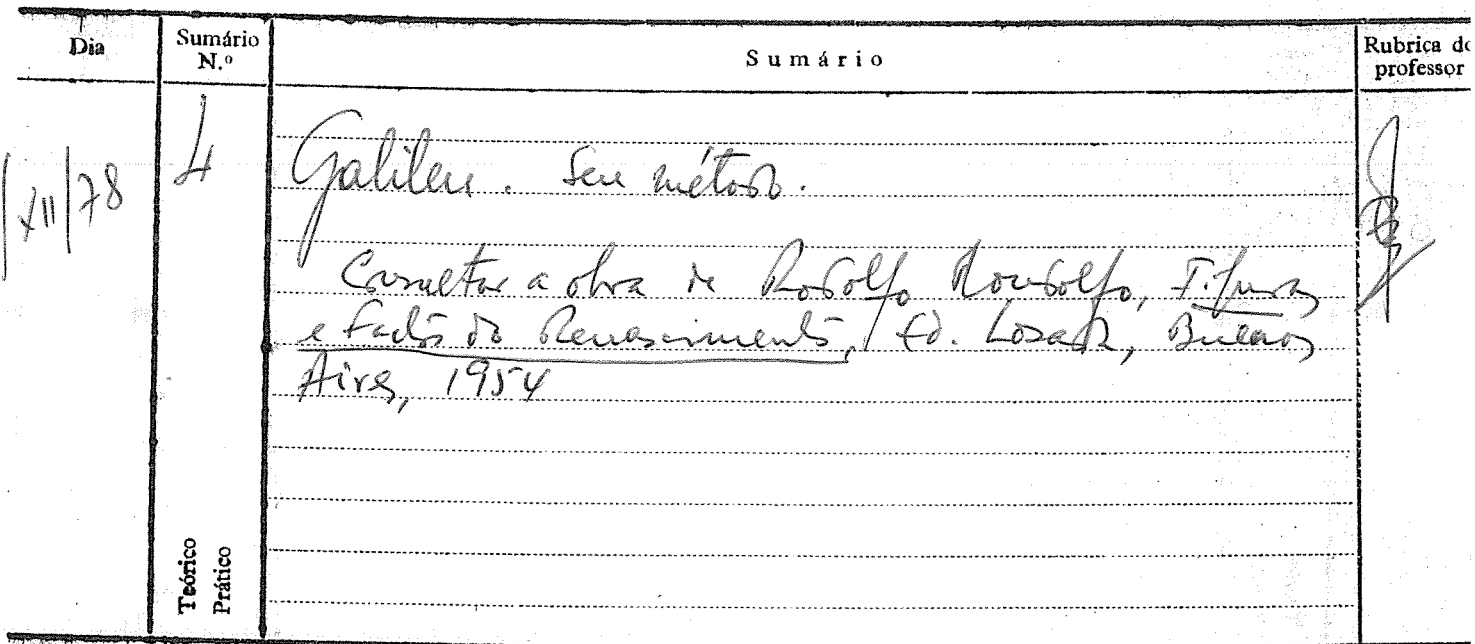 Dia
Sumário N.º
Sumário
Rubrica do professor
/XII/78
4
Galileu. Seu método.
Consultar a obra de Rodolfo Mondolfo, Figuras
e factos do Renascimento, Ed. Losada, Buenos
Aires, 1954
Teórico
Prático